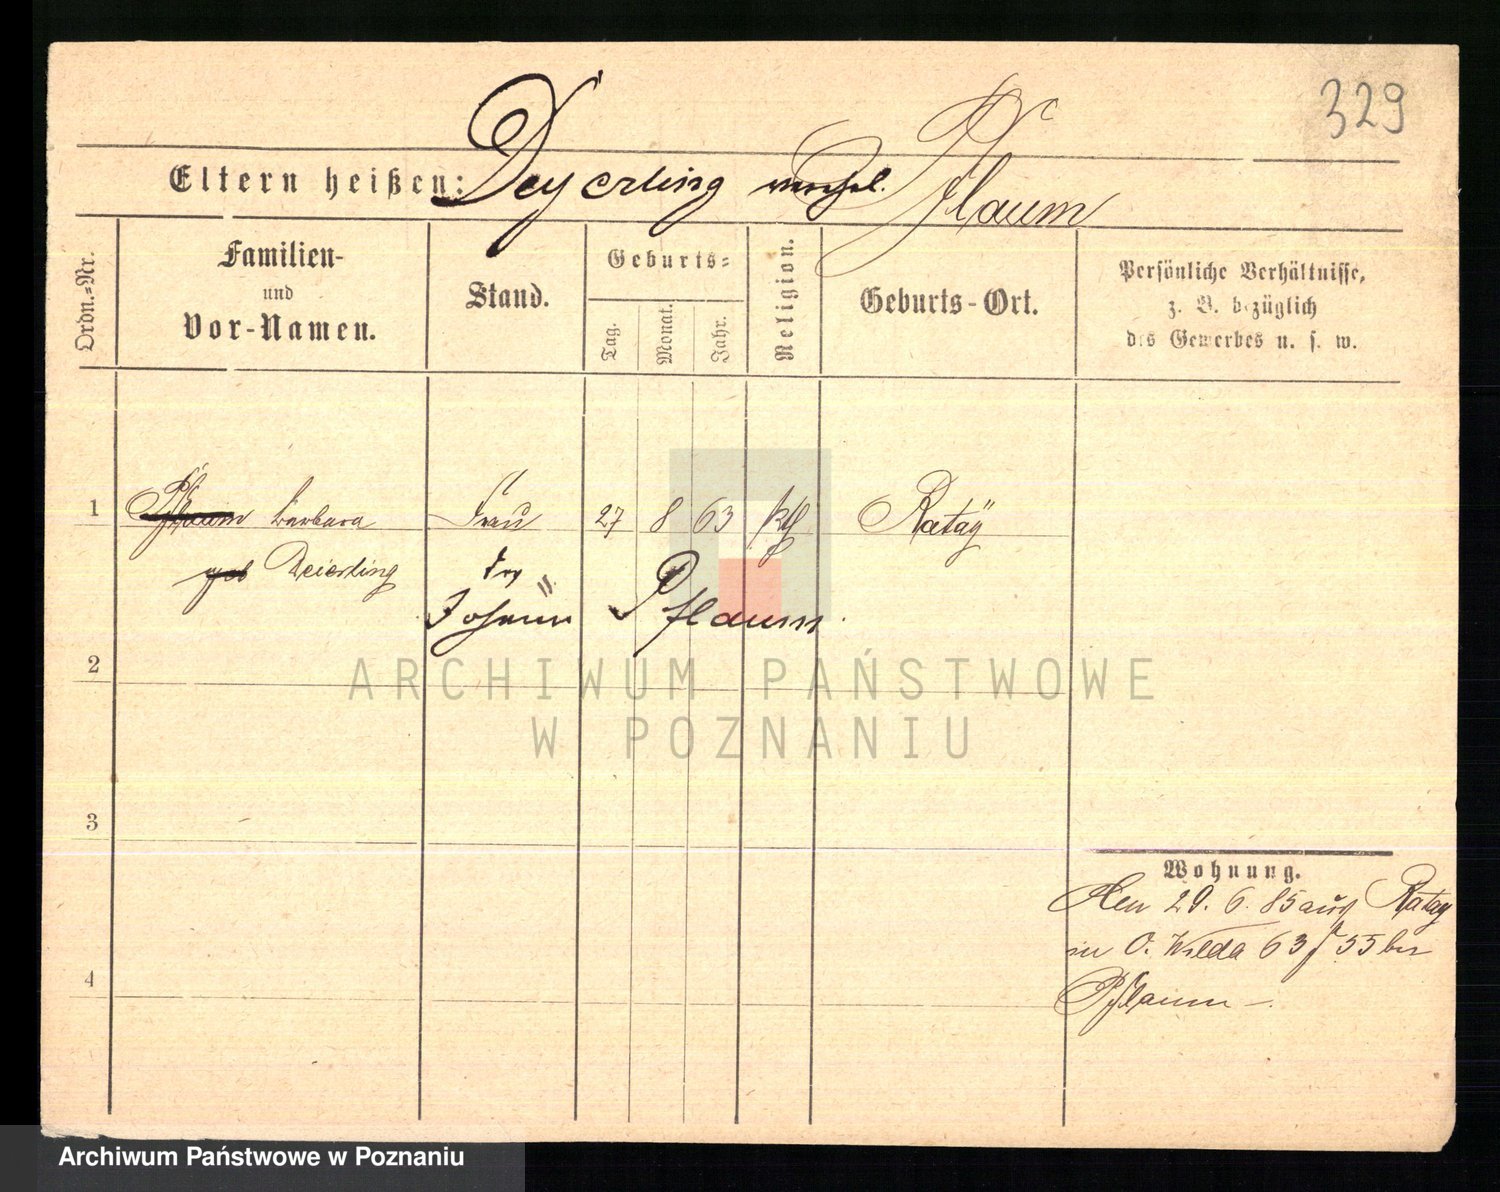 329
Eltern heißen: Deyerling verehel. Pflaum
Ordn.=Nr.
Familien-
und
Vor-Namen.
Stand.
Geburts=
Tag.
Monat.
Jahr.
Religion.
Geburts-Ort.
Persönliche Verhältnisse,
z. B. bezüglich
des Gewerbes u. s. w.
1 Pflaum Barbara Frau 27 8 63 kth Ratay
geb Deierling
Johann Pflaum
2
3
4
Wohnung.
Den 29. 6. 85 aus Ratay
in O. Wilda 63 f. 55 bei
Pflaum –
ARCHIWUM PAŃSTWOWE
W POZNANIU
Archiwum Państwowe w Poznaniu